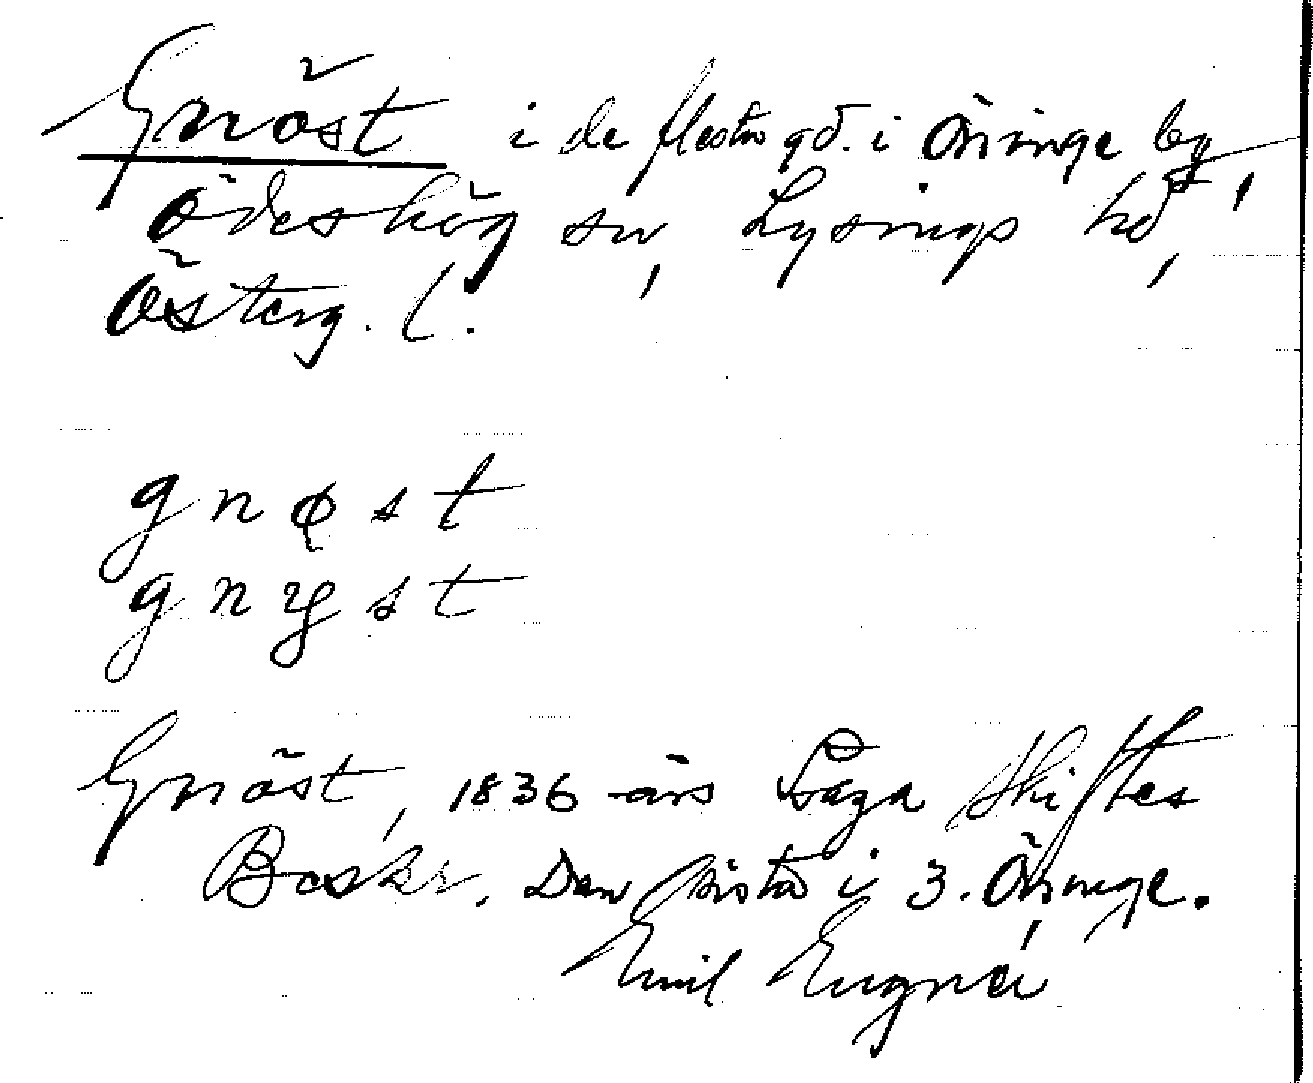 Gnöst i de flesta gd. i Öninge by,
Ödeshög sn, Lysings hd,
Österg. l.
g n ø s t
g n y s t
Gnöst, 1836 års Laga Skiftes
Beskr. Den sista i 3. Öninge.
Emil